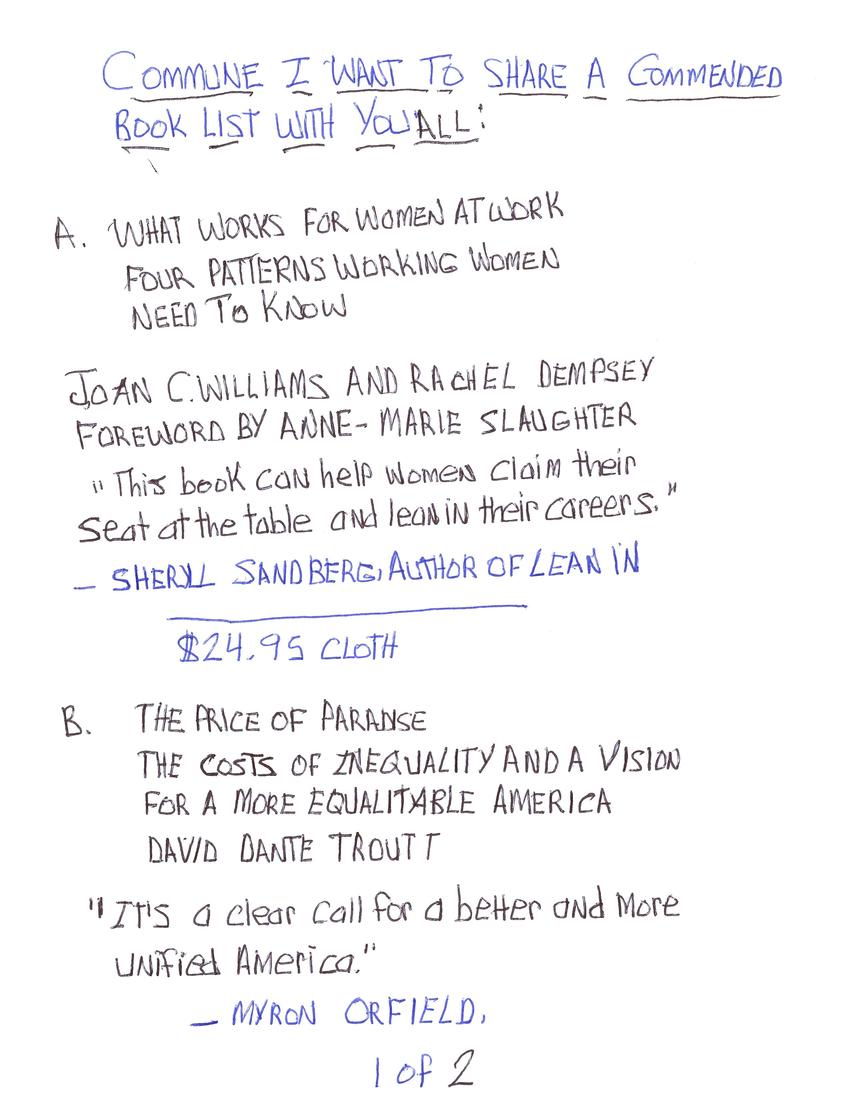 COMMUNE I WANT TO SHARE A COMMENDED
BOOK LIST WITH YOU ALL:
A. WHAT WORKS FOR WOMEN AT WORK
FOUR PATTERNS WORKING WOMEN
NEED TO KNOW
JOAN C. WILLIAMS AND RACHEL DEMPSEY
FOREWORD BY ANNE-MARIE SLAUGHTER
"This book can help women claim their
seat at the table and lean in their careers."
— SHERYLL SANDBERG, AUTHOR OF LEAN IN
$24.95 CLOTH
B. THE PRICE OF PARADISE
THE COSTS OF INEQUALITY AND A VISION
FOR A MORE EQUALITABLE AMERICA
DAVID DANTE TROUTT
"IT'S a clear call for a better and more
unified America."
— MYRON ORFIELD,
1 of 2